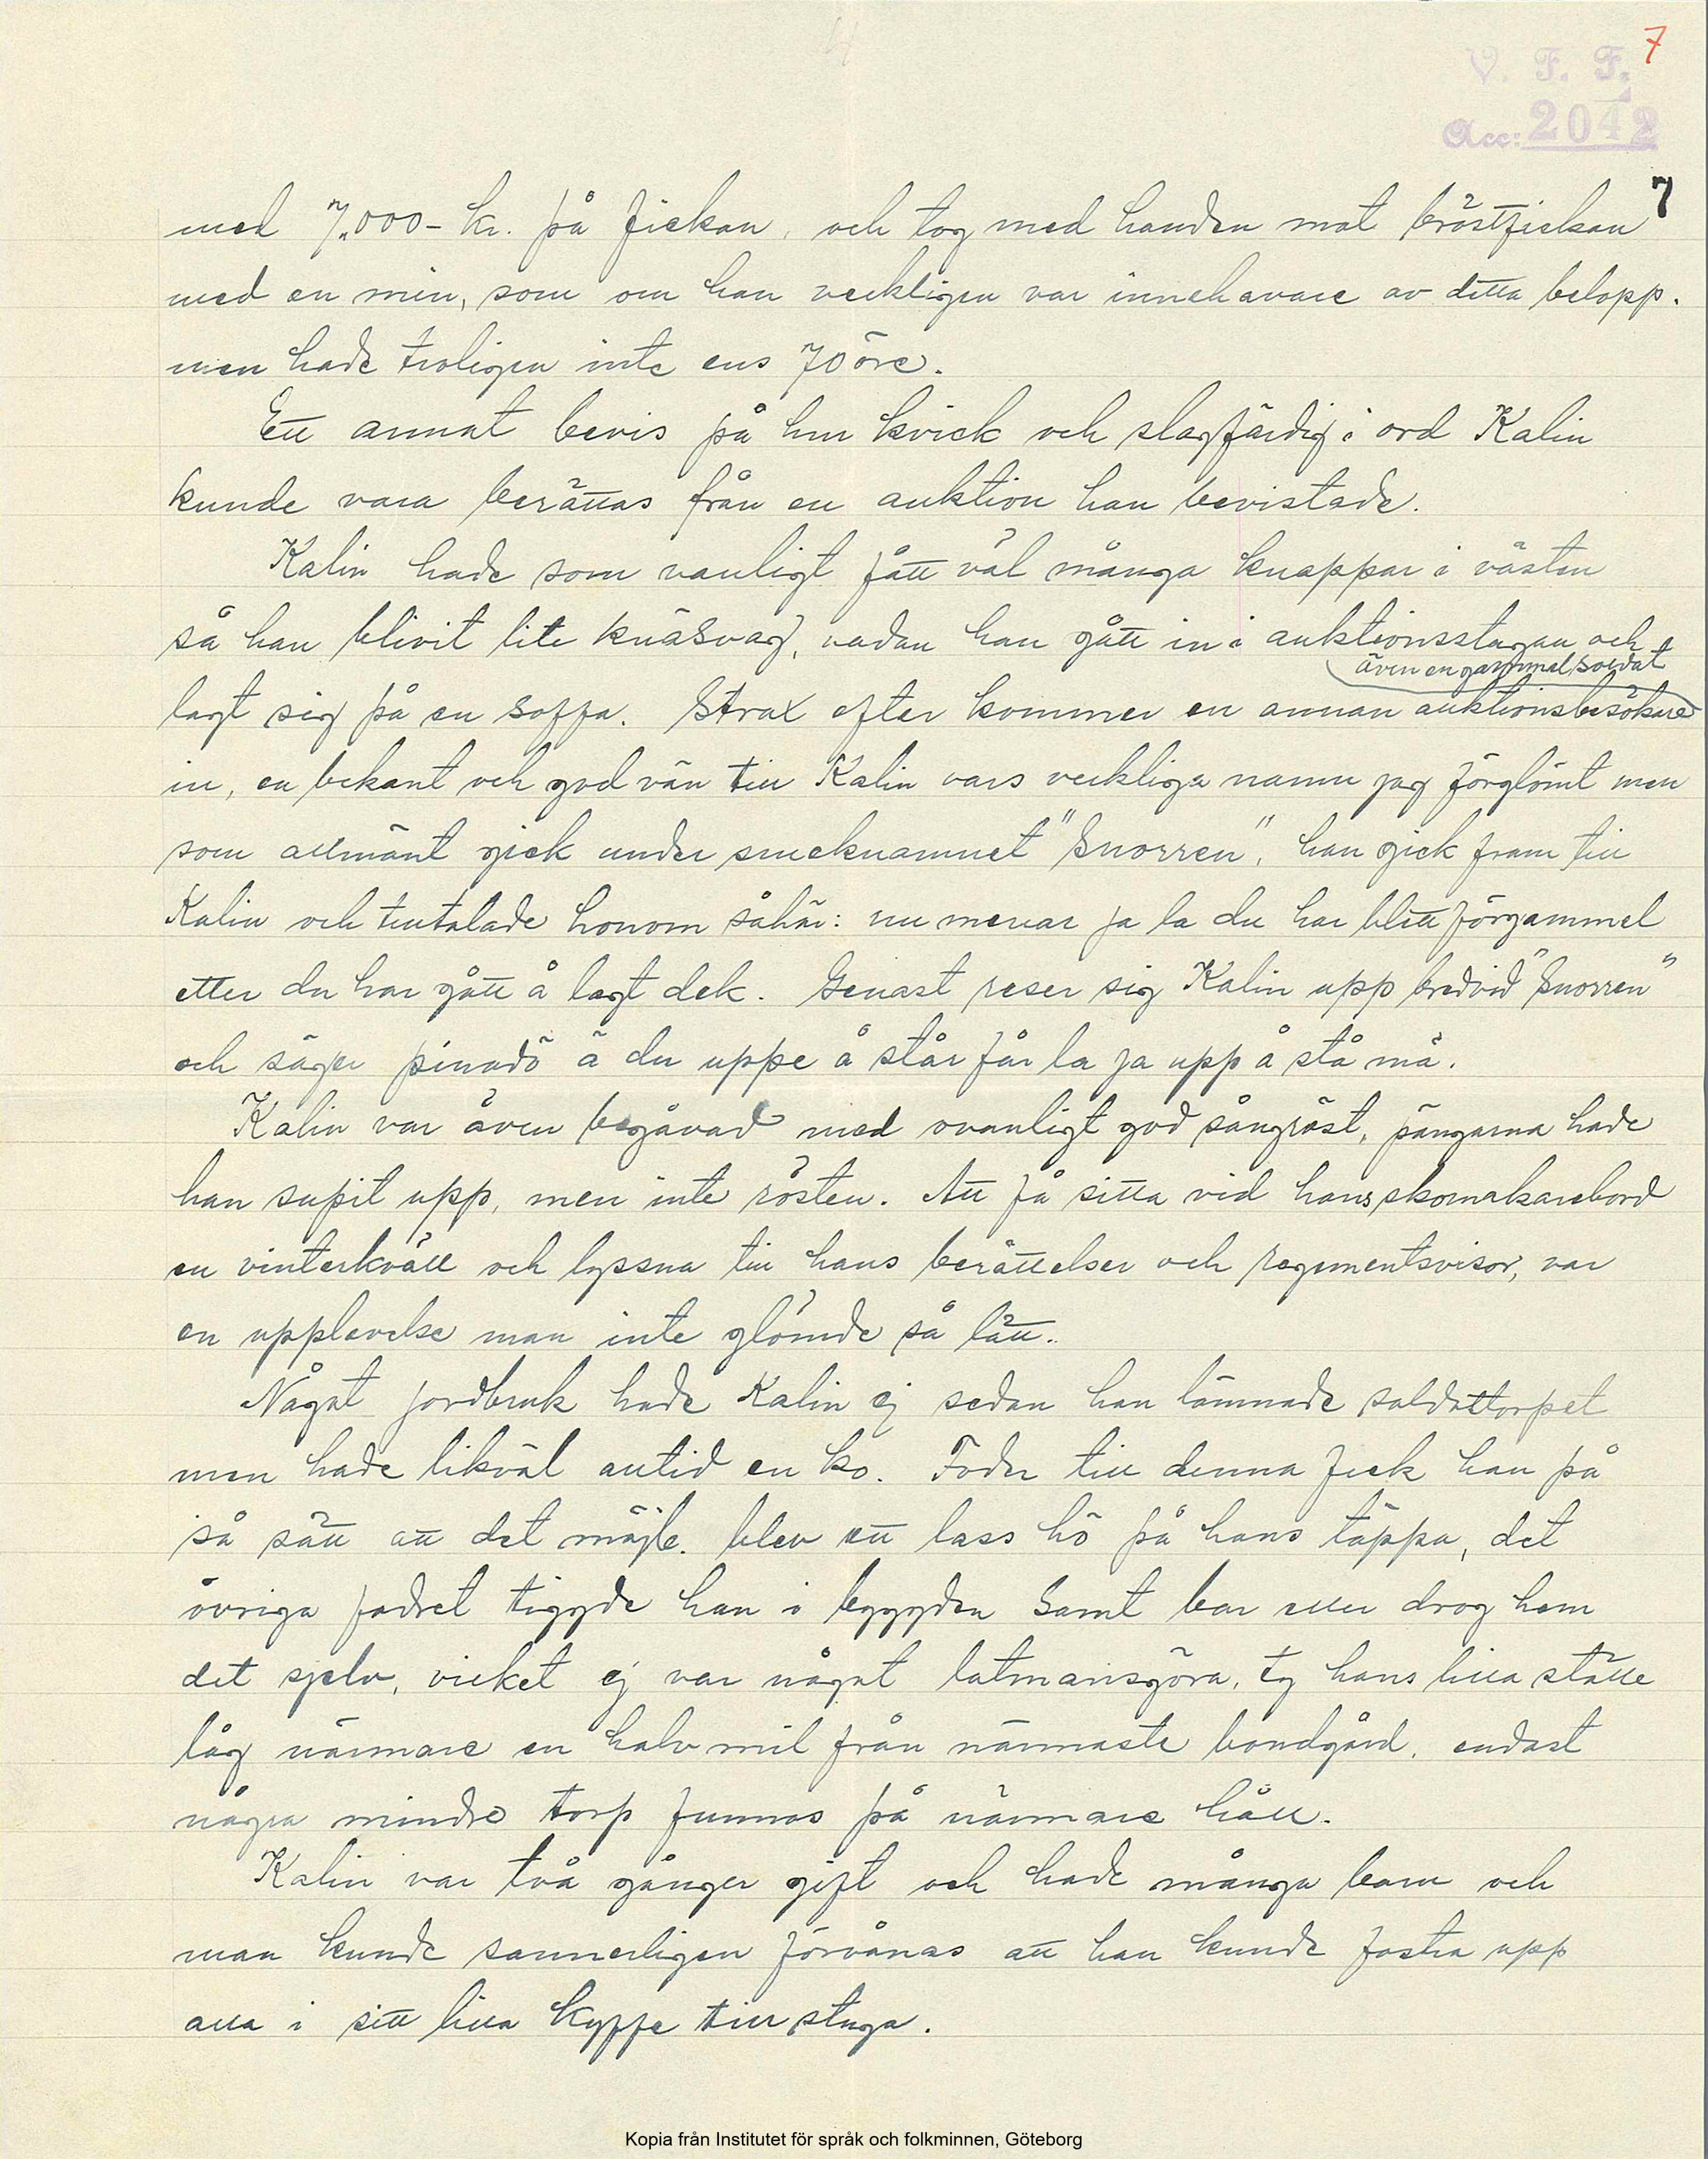 7
V. F. F.
Acc: 2042
7
med 7.000- kr. på fickan, och tog med handen mot bröstfickan
med en min, som om han verkligen var innehavare av detta belopp.
men hade troligen inte ens 70 öre.
Ett annat bevis på hur kvick och slagfärdig i ord Kalin
kunde vara berättas från en auktion han bevistade.
Kalin hade som vanligt fått väl många knappar i västen
så han blivit lite knäsvag, vadan han gått in i auktionsstugan och
även en gammel soldat
lagt sig på en soffa. Strax efter kommer en annan auktionsbesökare
in, en bekant och god vän till Kalin vars verkliga namn jag förglömt men
som allmänt gick under smeknamnet "Snorren", han gick fram till
Kalin och tilltalade honom såhär: nu menar ja la du har blitt förgammel
etter du har gått å lagt dek. Genast reser sig Kalin upp bredvid "Snorren"
och säger pinadö ä du uppe å står får la ja upp å stå mä.
Kalin var även begåvad med ovanligt god sångröst, pängarna hade
han supit upp, men inte rösten. Att få sitta vid hans skomakarebord
en vinterkväll och lyssna till hans berättelser och regementsvisor, var
en upplevelse man inte glömde så lätt.
Något jordbruk hade Kalin ej sedan han lämnade soldattorpet
men hade likväl alltid en ko. Foder till denna fick han på
så sätt att det möjle. blev ett lass hö på hans täppa, det
övriga fodret tiggde han i byggden samt bar eller drog hem
det sjelv, vilket ej var något latmansgöra, ty hans lilla ställe
låg närmare en halv mil från närmaste bondgård, endast
några mindre torp funnos på närmare håll.
Kalin var två gånger gift och hade många barn och
man kunde sannerligen förvånas att han kunde fostra upp
alla i sitt lilla kyffe till stuga.
Kopia från Institutet för språk och folkminnen, Göteborg